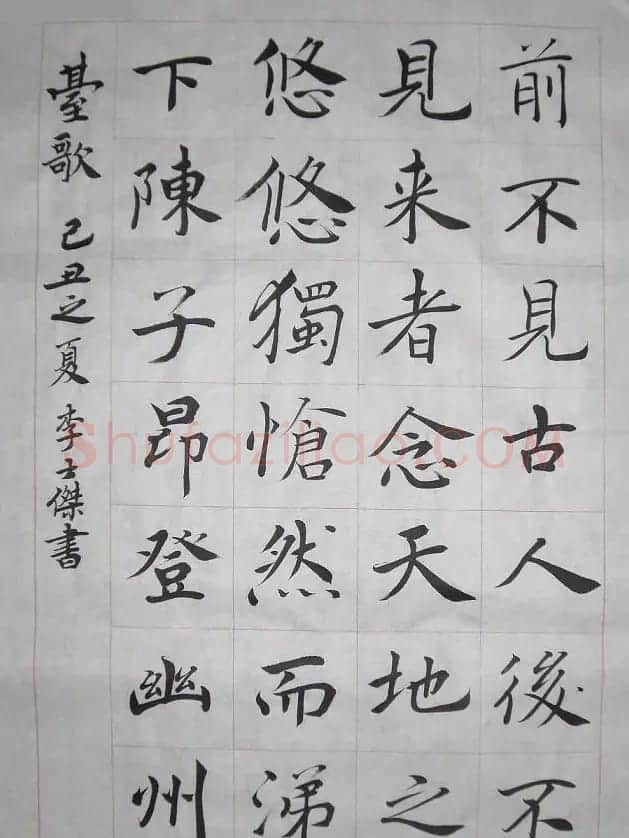 前不見古人後不
見来者念天地之
悠悠獨愴然而涕
下陳子昂登幽州
臺歌 己丑之夏 李士傑書
Shufaziliao.COM